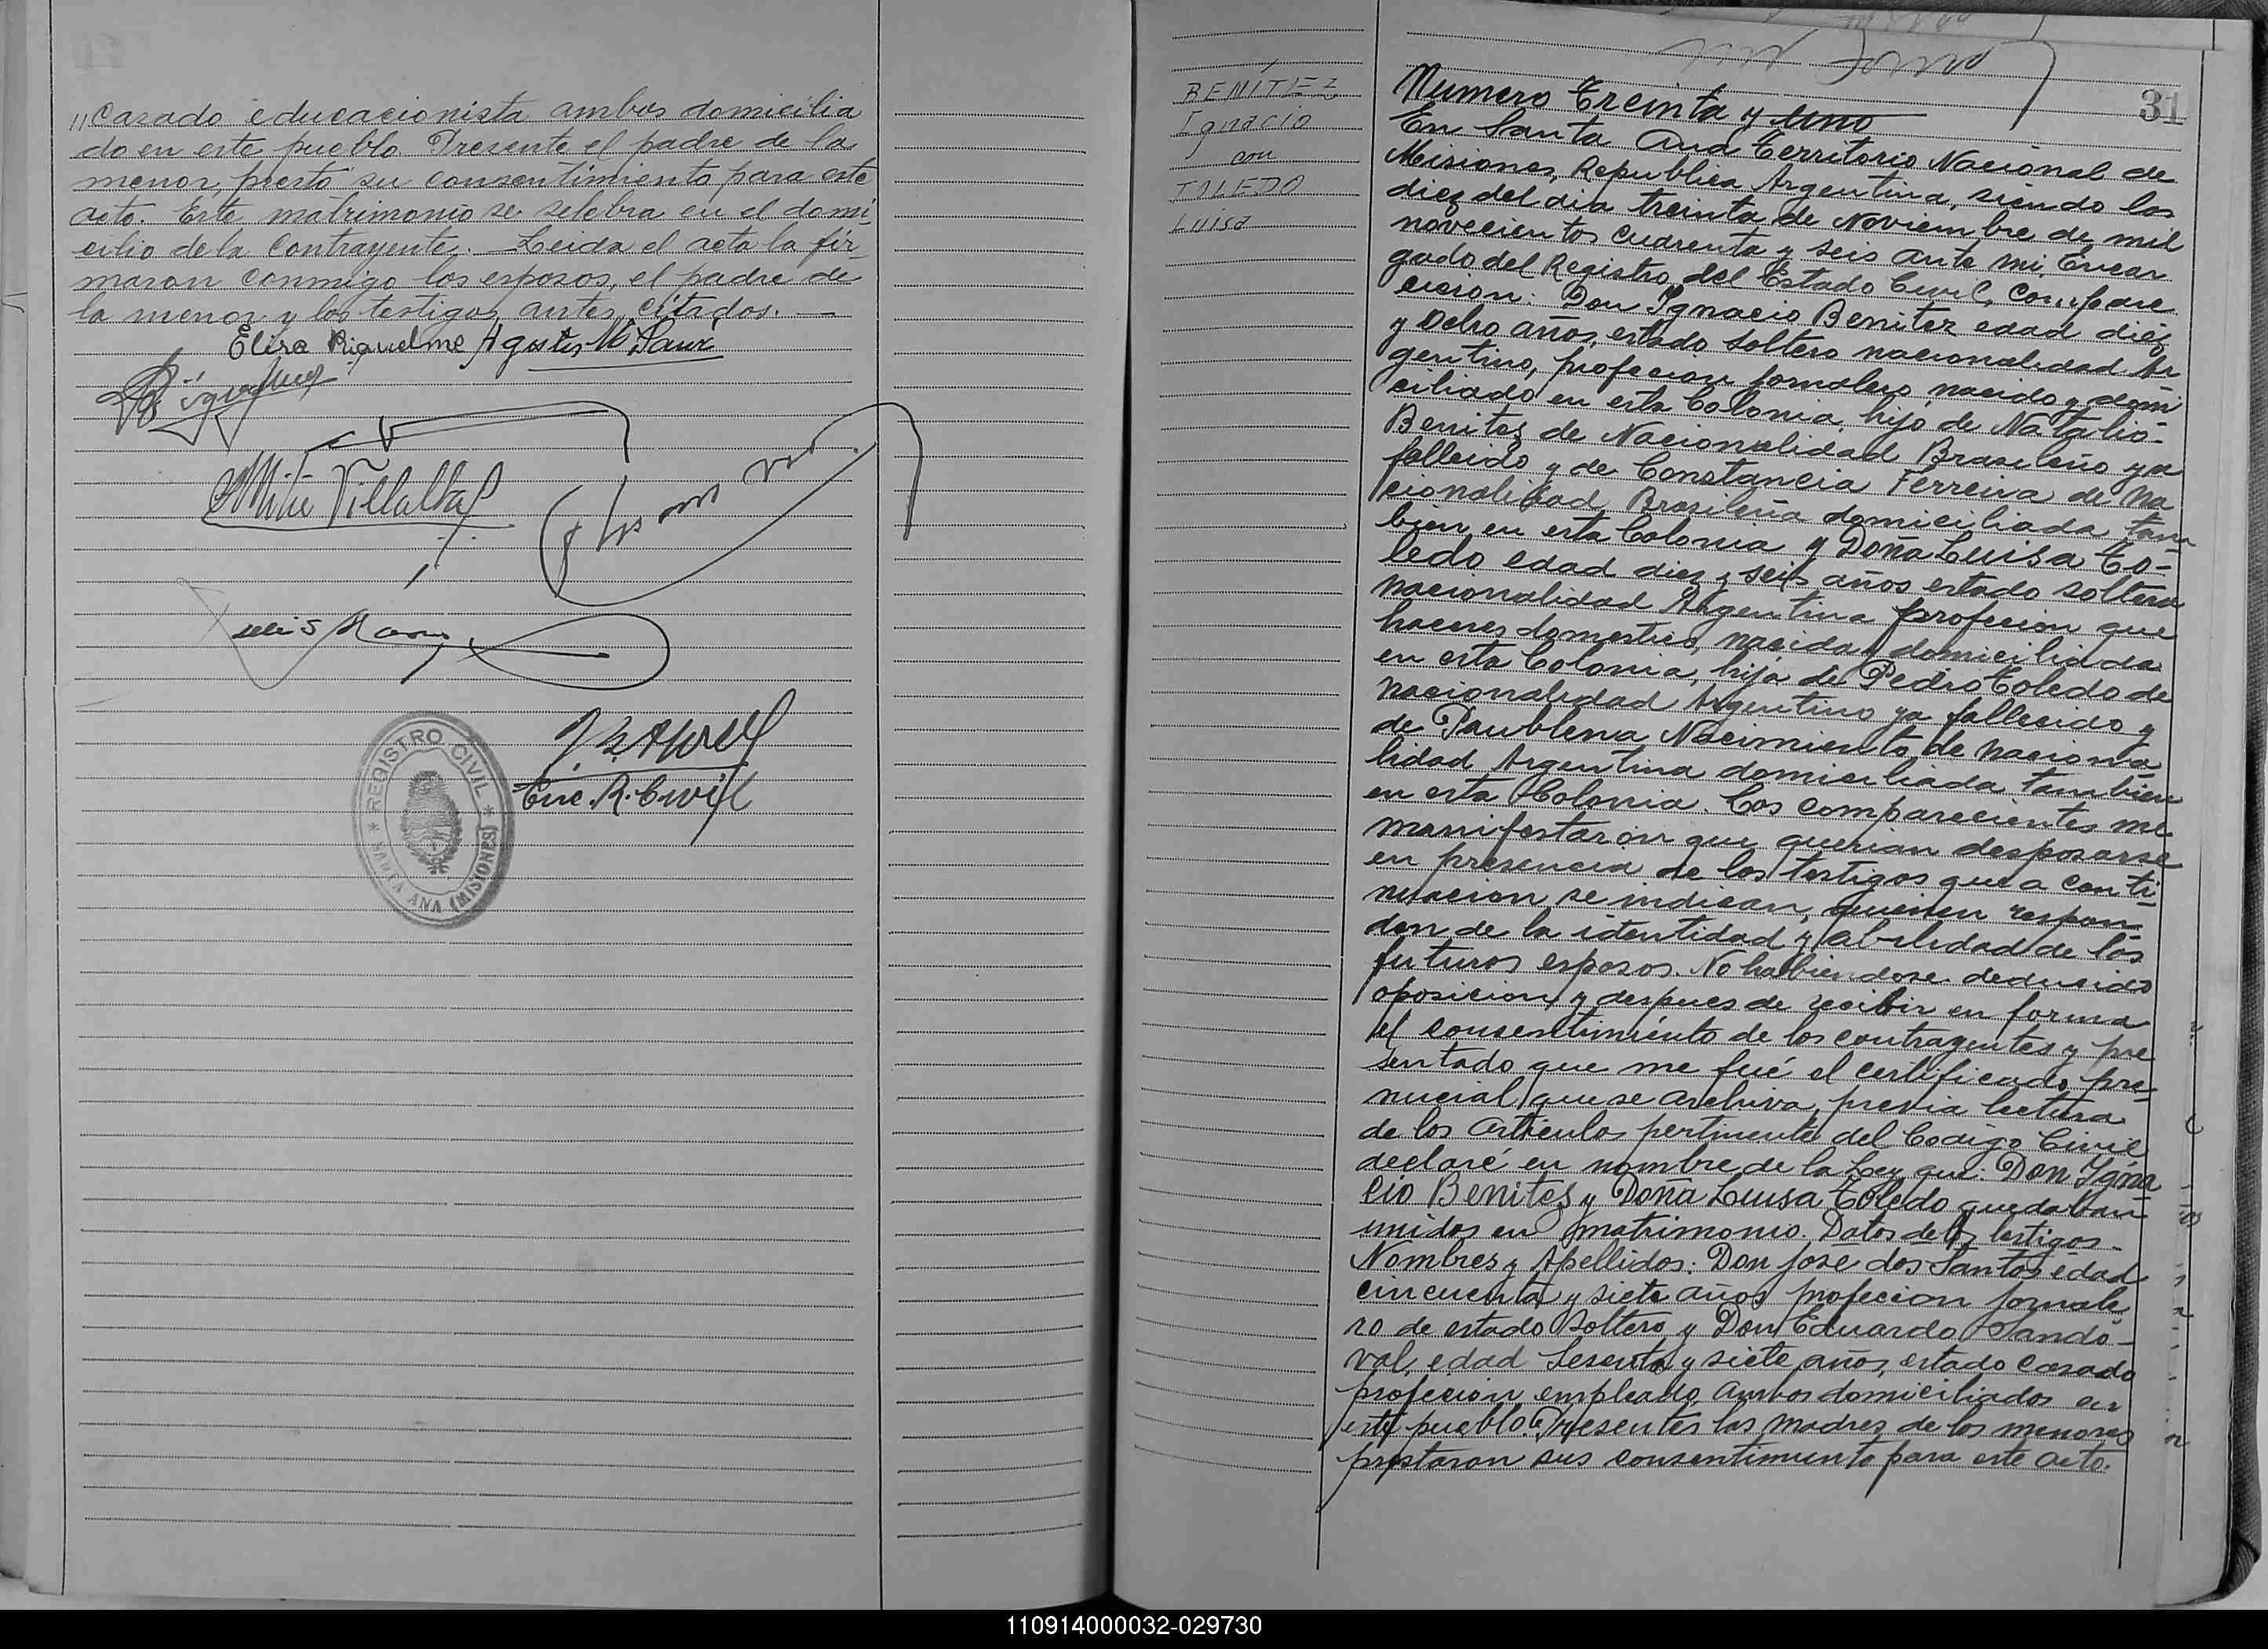 "Casado educacionista ambos domicilia
do en este pueblo Presente el padre de la
menor, prestó su consentimiento para este
acto. Este matrimonio se selebra en el domi-
cilio de la Contrayente. Leida el acta la fir-
maron conmigo los esposos, el padre de
la menor y los testigos antes citados. —
Elisa Riquelme Agustin M
Villalba
Luis
Enc. R. Civil
REGISTRO CIVIL
SANTA ANA (MISIONES)
BENÍTEZ
Ignacio
con
TOLEDO
Luisa
31
Numero Treinta y uno
En Santa Ana Territorio Nacional de
Misiones, Republica Argentina, siendo las
diez del dia treinta de Noviembre de mil
novecientos cuarenta y seis ante mi, Encar
gado del Registro del Estado Civil, Compare
cieron: Don Ygnacio Benitez edad diez
y ocho años, estado soltero nacionalidad Ar
gentino, profecion jornalero nacido y domi
ciliado en esta Colonia, hijo de Natalio-
Benites de Nacionalidad Brasileño ya
fallecido y de Constancia Ferreira de Na
cionalidad Brasileña domiciliada tam
bien en esta Colonia y Doña Luisa To-
ledo edad diez y seis años estado soltera
nacionalidad Argentina profecion que
haceres domestico, nacida y domiciliada
en esta Colonia, hija de Pedro Toledo de
nacionalidad Argentino ya fallecido y
de Paublena Nacimiento de naciona
lidad Argentina domiciliada tambien
en esta Colonia. Los comparecientes me
manifestaron que querian desposarse
en presencia de los testigos que a conti-
nuacion se indican, quienen respon
den de la identidad y abilidad de los
futuros esposos. No habiendose deducido
oposicion y despues de recibir en forma
el consentimiento de los contrayentes y pre
sentado que me fué el certificado pre-
nucial que se archiva, previa lectura
de los articulos pertinente del Codigo Civil
declaré en nombre de la Ley que: Don Ygna
cio Benites y Doña Luisa Toledo quedaban
unidos en matrimonio. Datos de los testigos-
Nombres y Apellidos: Don José dos Santos edad
cincuenta y siete años profecion jornale
ro de estado soltero y Don Eduardo Sando-
val, edad Sesenta y siete años, estado casado
profecion empleado ambos domiciliados en
este pueblo. Presentes las madres de los menores
prestaron sus consentimiento para este acto.
110914000032-029730